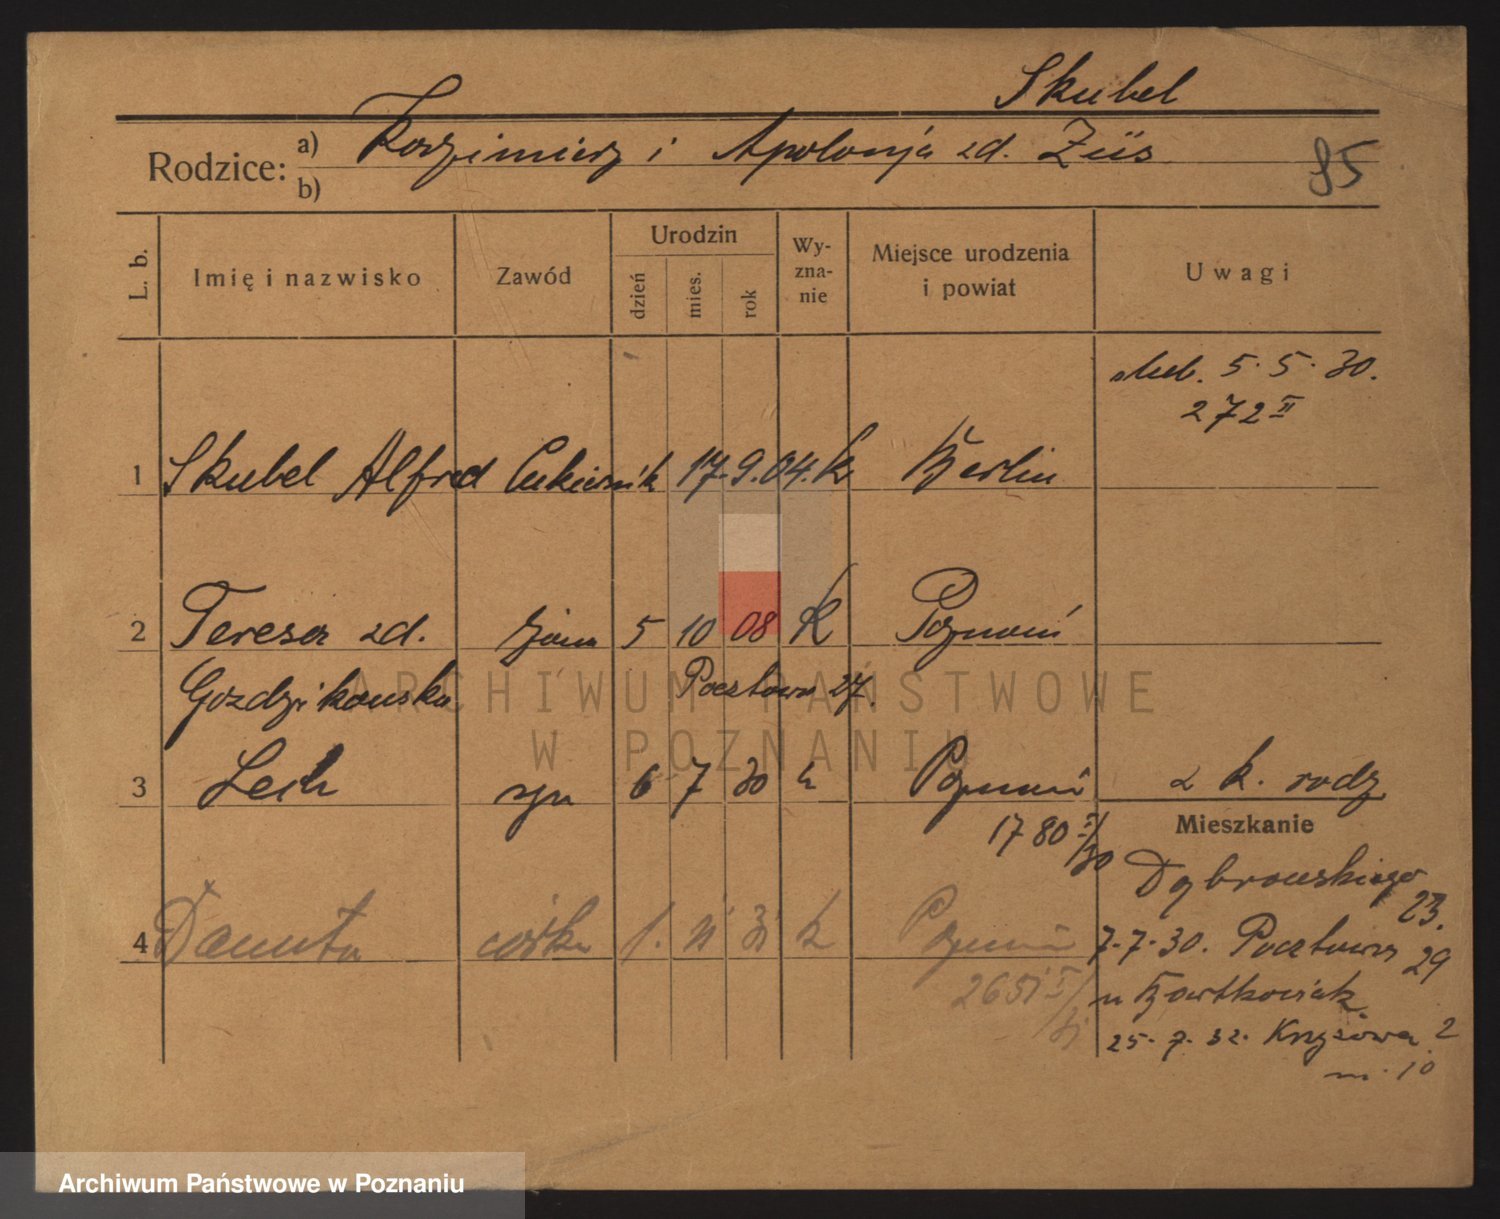 Skubel
Rodzice: a) Kazimierz i Apolonja zd. Züs
b)
85
L. b.
Imię i nazwisko
Zawód
Urodzin
dzień
mies.
rok
Wy-
zna-
nie
Miejsce urodzenia
i powiat
Uwagi
slub. 5.5.30.
272 II
1 Skubel Alfred Cukiernik 17.9.04. k Berlin
2 Teresa zd. żona 5 10 08 K Poznań
Goździkowska Pocztowa 27.
3 Lech syn 6 7 30 k Poznań z k. rodz
1780 I/30
Mieszkanie
Dąbrowskiego
23.
4 Danuta córka 1. 11 31 k Poznań 7.7.30. Pocztowa 29
2651 I/31
u Bartkowiak
25.7.32. Krzyżowa 2
m. 10
ARCHIWUM PAŃSTWOWE
W POZNANIU
Archiwum Państwowe w Poznaniu